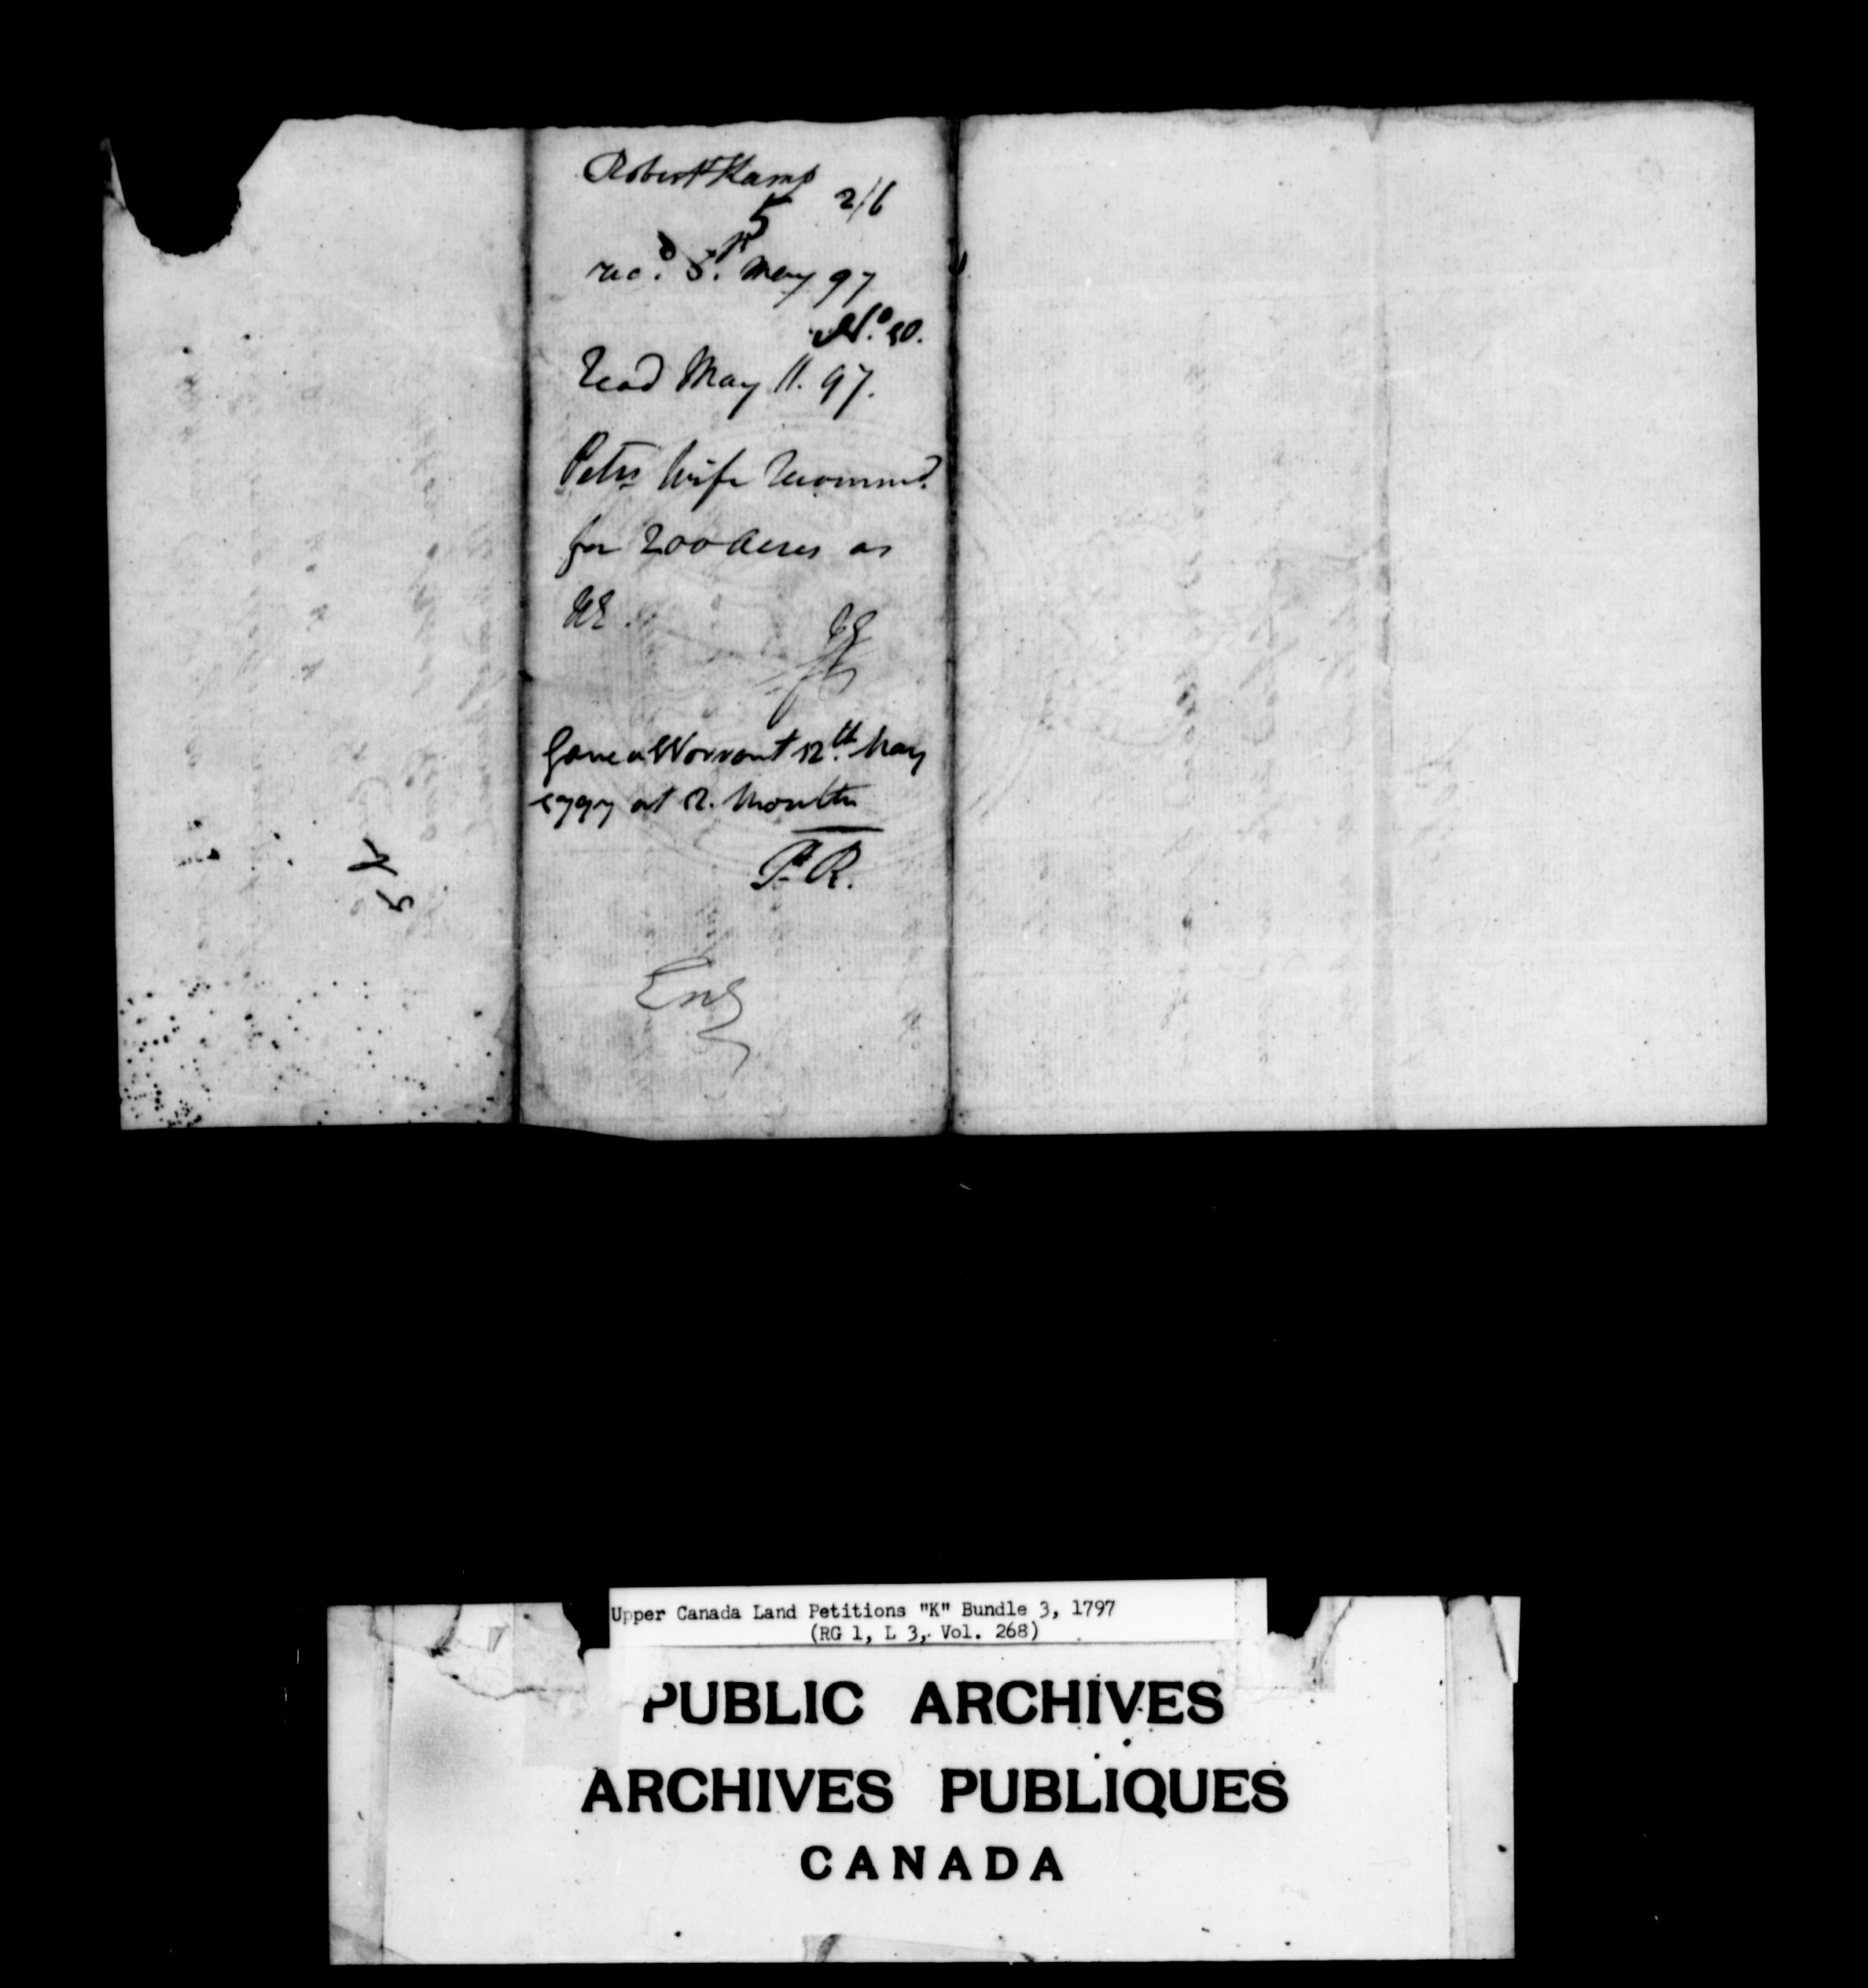 Robert Kamp
2/6
5
K
rec.d 5. May 97
No. 50.
Read May 11. 97.
Petrs wife recommd.
for 200 Acres as
UE.
JE
Gave a Warrant 12.th May
1797 at 12. Months
P.R.
Eng
K
5
Upper Canada Land Petitions "K" Bundle 3, 1797
(RG 1, L 3, Vol. 268)
PUBLIC ARCHIVES
ARCHIVES PUBLIQUES
CANADA